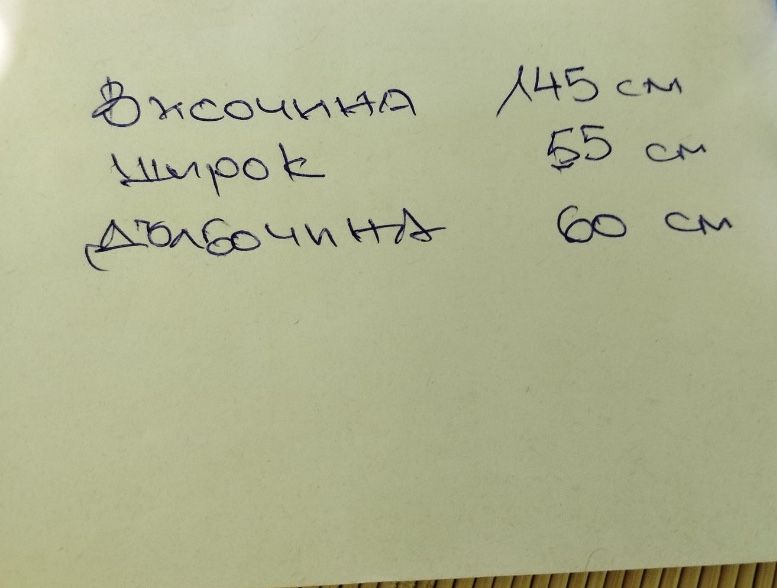 Височина 145 см
широк 55 см
Дълбочина 60 см